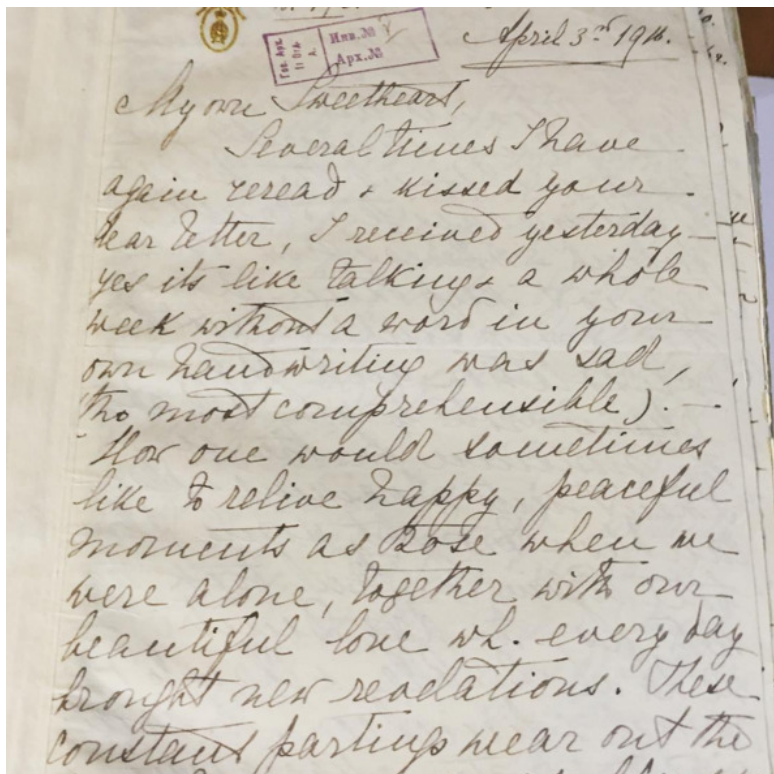 April 3rd 1916.
Инв.№
Арх.№
My own Sweetheart,
Several times I have
again reread & kissed your
dear letter, I received yesterday –
yes its like talking & a whole
week without a word in your
own handwriting was sad,
(tho most comprehensible). –
How one would sometimes
like to relive happy, peaceful
moments as those when we
were alone, together with our
beautiful love wh. every day
brought new revelations. These
constant partings wear out the